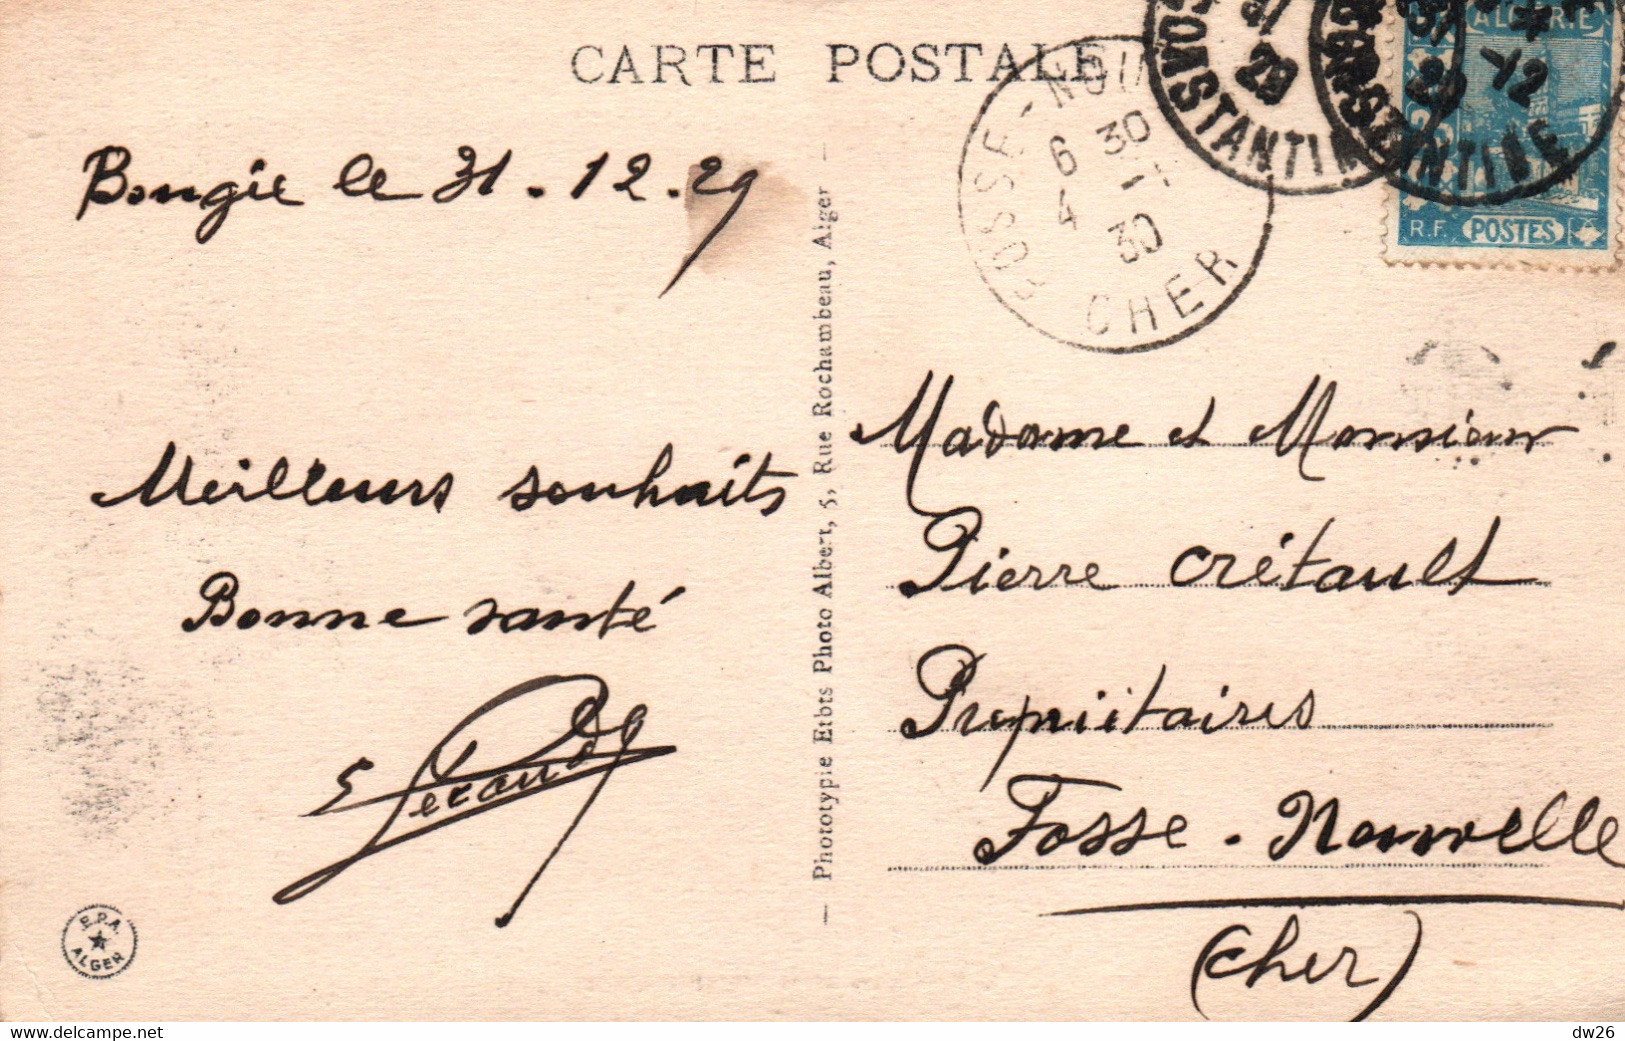 CARTE POSTALE
Bougie le 31.12.29
Meilleurs souhaits
Bonne santé
E.P.A.
ALGER
Phototypie Etbts Photo Albert, 5, Rue Rochambeau, Alger
FOSSE-NOU
6 30
4 -1
30
CHER
31
29
CONSTANTINE
-12
CONSTANTINE
ALGERIE
R.F. POSTES
Madame et Monsieur
Pierre Crétault
Propriétaires
Fosse-Nouvelle
(Cher)
Delcampe.net
dw26